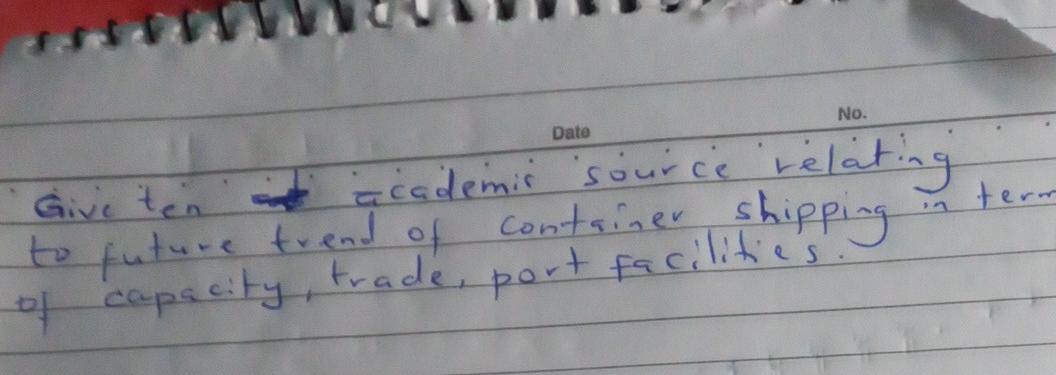 Date No.
Give ten academic source relating
to future trend of container shipping in term
of capacity, trade, port facilities.